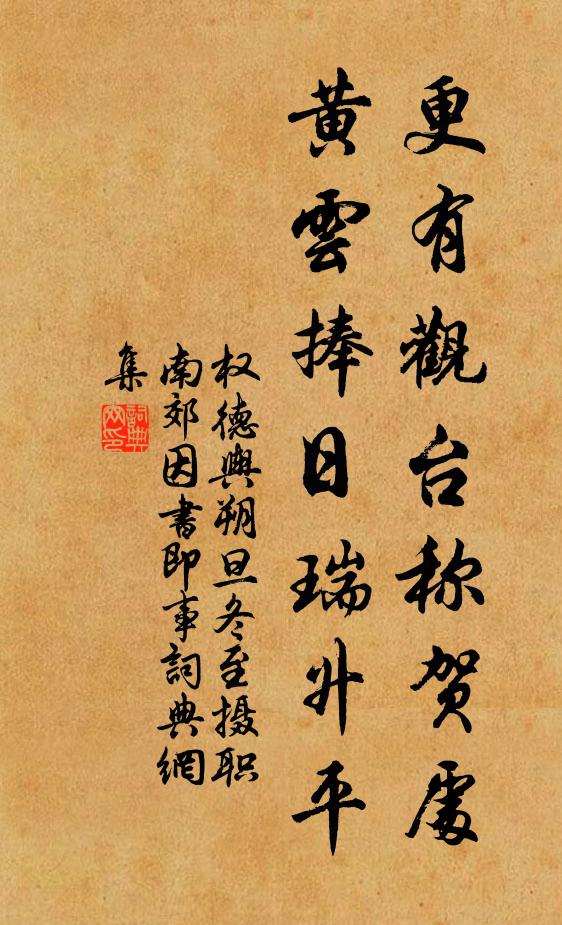 更有觀台称賀處
黃雲捧日瑞升平
权德輿朔旦冬至摄职
南郊因書即事詞典網
集
詞典網印